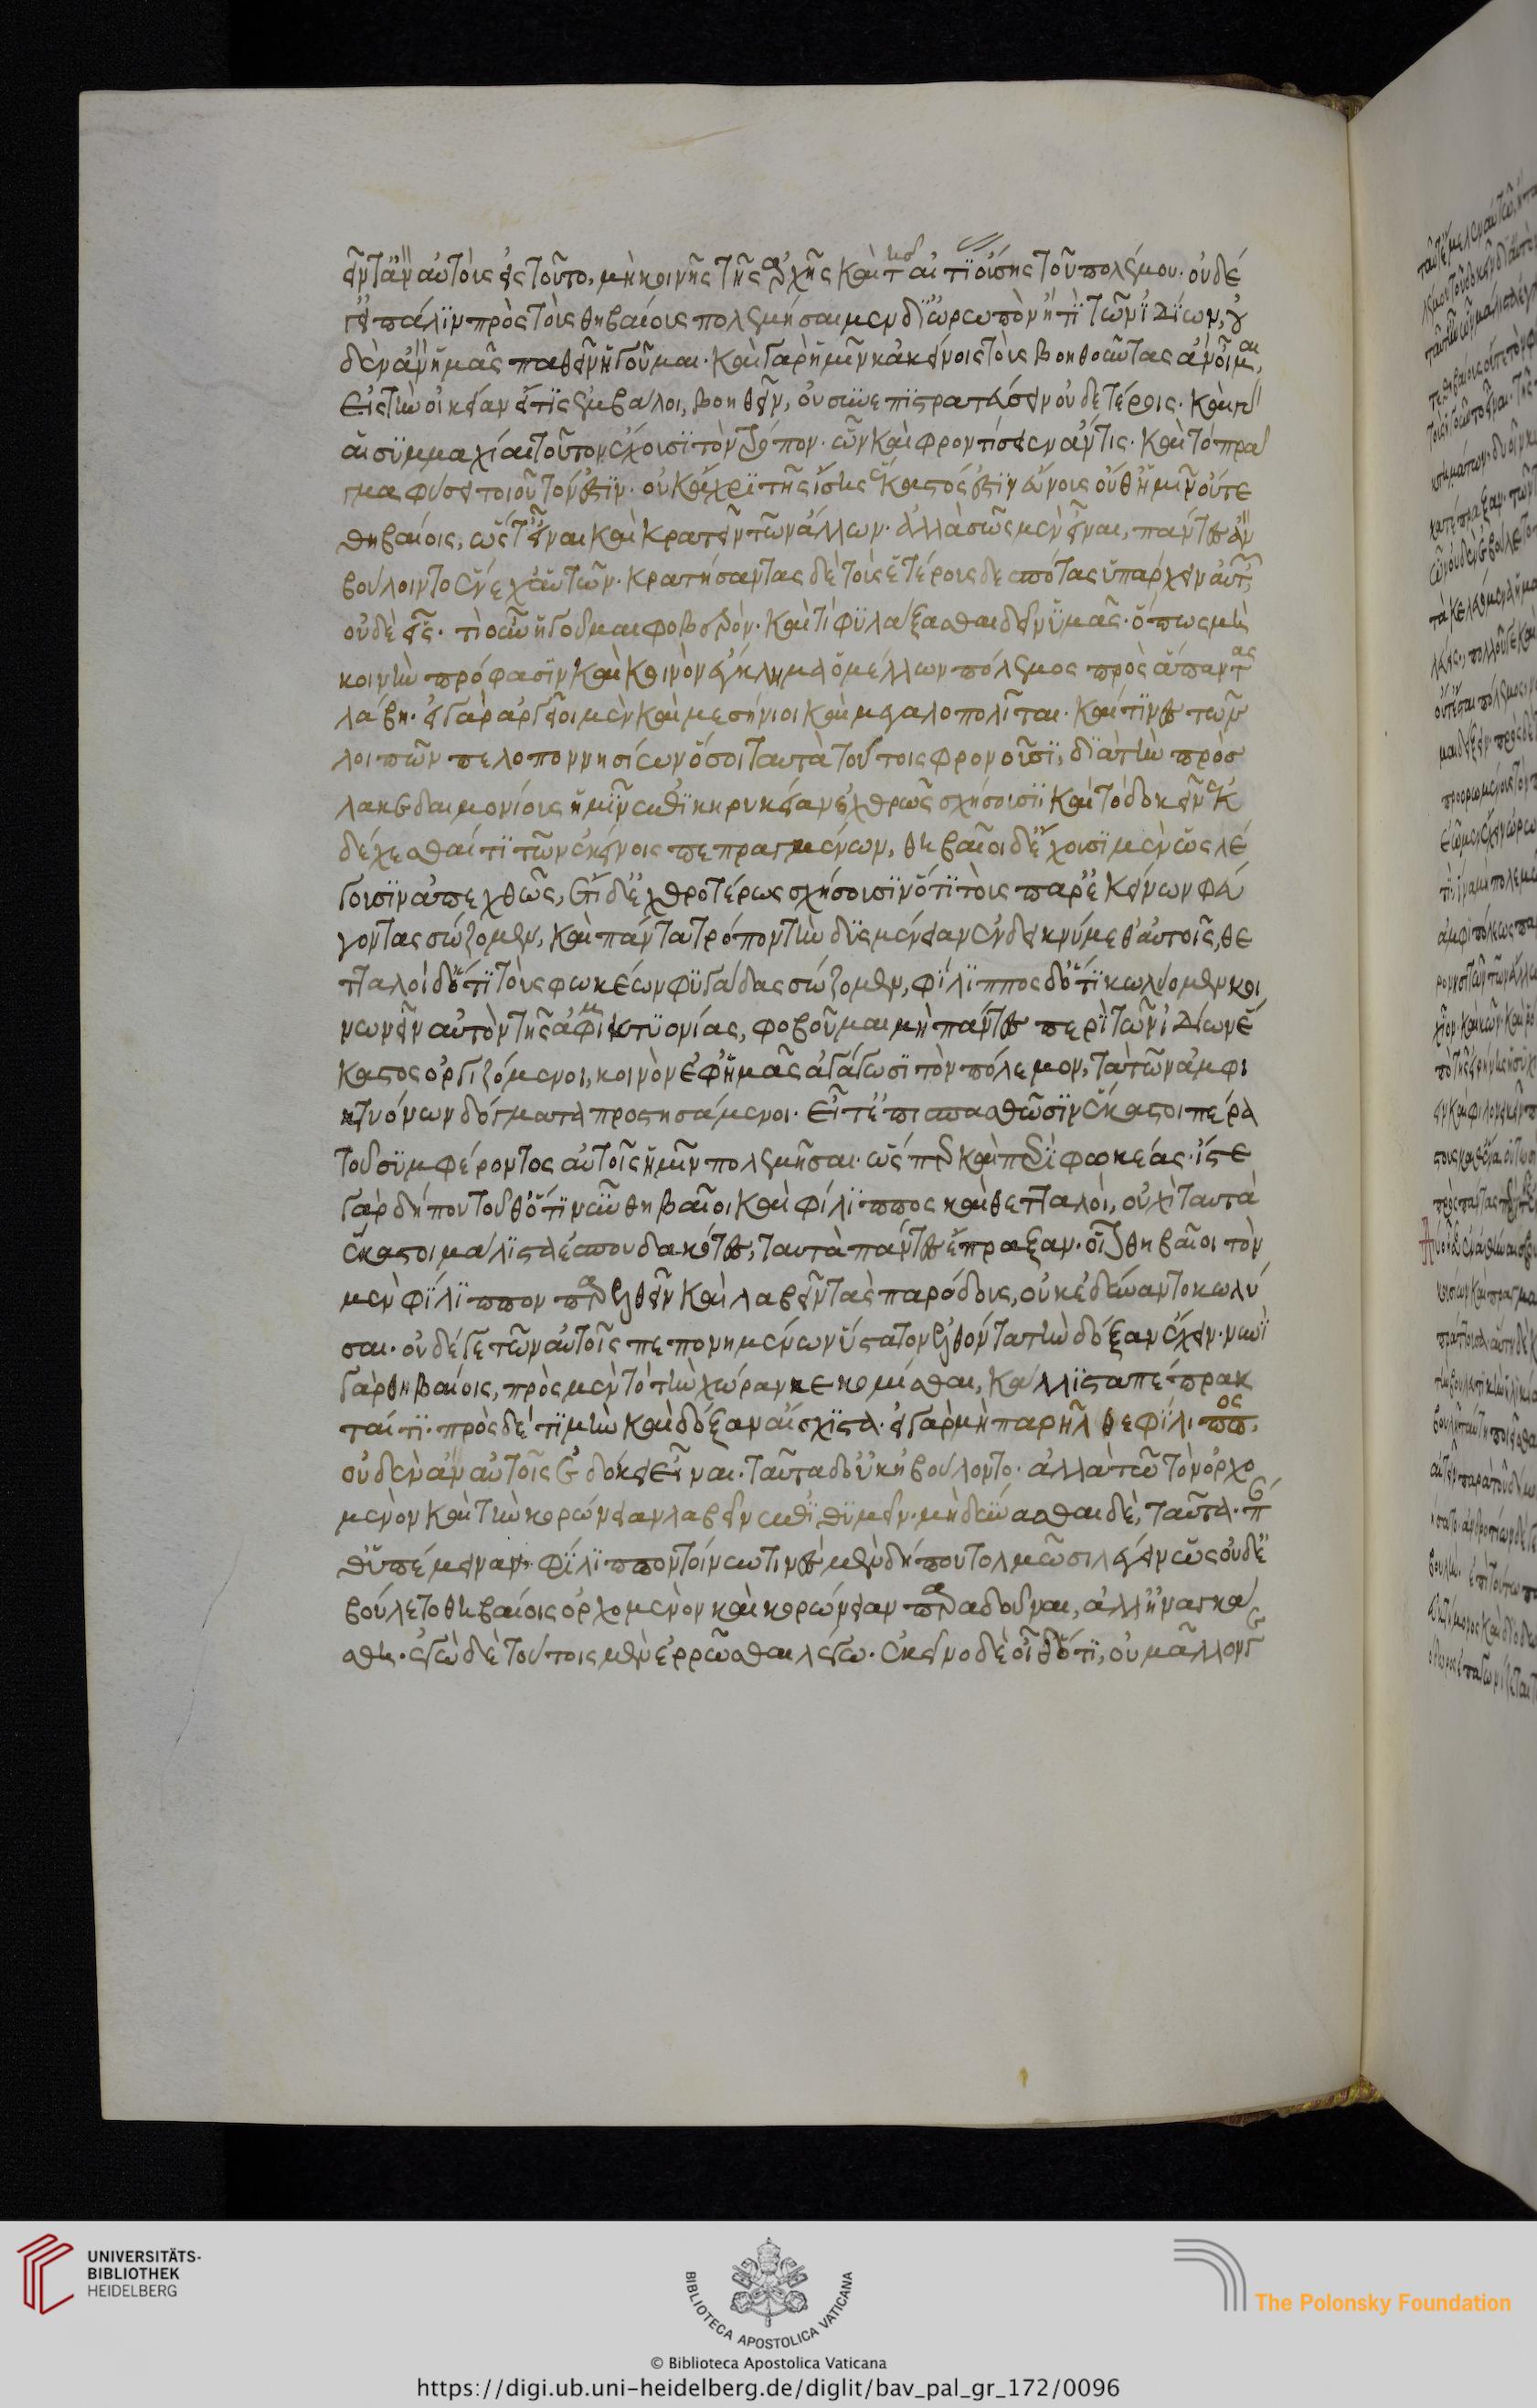 εῖν τἂν αὐτοὺς εἰς τοῦτο, μὴ κοινῆς τῆς ἀρχῆς καὶ τῆς αἰτίας οὔσης τοῦ πολέμου. οὐδέ
γε πάλιν πρὸς τοὺς θηβαίους πολεμήσαιμεν δι' ὠρωπὸν ἤ τι τῶν ἰδίων, οὐ
δὲν ἂν ἡμᾶς παθεῖν ἡγοῦμαι. καὶ γὰρ ἡμῖν κἀκείνοις τοὺς βοηθοῦντας ἂν οἶμαι,
εἰς τὴν οἰκείαν εἴ τις ἐμβάλοι, βοηθεῖν, οὐ συνεπιστρατεύσειν οὐδετέροις. καὶ γὰρ
αἱ συμμαχίαι τοῦτον ἔχουσι τὸν τρόπον. ὧν καὶ φροντίσειεν ἄν τις. καὶ τὸ πρᾶ
γμα φύσει τοιοῦτόν ἐστιν. οὐκ ἄχρι τῆς ἴσης ἕκαστός ἐστιν εὔνους οὔθ' ἡμῖν οὔτε
θηβαίοις, ὥστ' εἶναι καὶ κρατεῖν τῶν ἄλλων. ἀλλὰ σῶς μὲν εἶναι, πάντες ἂν
βούλοιντο ἕνεχ' αὑτῶν. κρατήσαντας δὲ τοὺς ἑτέρους δεσπότας ὑπάρχειν αὐτῶν,
οὐδὲ εἷς. τί οὖν ἡγοῦμαι φοβερὸν. καὶ τί φυλάξασθαι δεῖν ὑμᾶς. ὅπως μὴ
κοινὴν πρόφασιν καὶ κοινὸν ἔγκλημα ὁ μέλλων πόλεμος πρὸς ἅπαντας
λάβῃ. εἰ γὰρ ἀργεῖοι μὲν καὶ μεσήνιοι καὶ μεγαλοπολῖται. καί τινες τῶν
λοιπῶν πελοποννησίων ὅσοι ταυτὰ τούτοις φρονοῦσι, διὰ τὴν πρὸς
λακεδαιμονίους ἡμῖν ἐπικηρυκείαν ἐχθρῶς σχήσουσι, καὶ τὸ δοκεῖν ἐκ
δέχεσθαί τι τῶν ἐκείνοις πεπραγμένων, θηβαῖοι δὲ ἔχουσι μὲν ὡς λέ
γουσιν ἀπεχθῶς, ἔτι δὲ ἐχθροτέρως σχήσουσιν ὅτι τοὺς παρ' ἐκείνων φεύ
γοντας σώζομεν, καὶ πάντα τρόπον τὴν δυσμένειαν ἐνδεικνύμεθ' αὐτοῖς, θε
τταλοὶ δ' ὅτι τοὺς φωκέων φυγάδας σώζομεν, φίλιππος δ' ὅτι κωλύομεν κοι
νωνεῖν αὐτὸν τῆς ἀμφικτυονίας, φοβοῦμαι μὴ πάντες περὶ τῶν ἰδίων ἕ
καστος ὀργιζόμενοι, κοινὸν ἐφ' ἡμᾶς ἀγάγωσι τὸν πόλεμον, τὰ τῶν ἀμφι
κτυόνων δόγματα προστησάμενοι. εἶτ' ἐπισπασθῶσιν ἕκαστοι πέρα
τοῦ συμφέροντος αὑτοῖς ἡμῖν πολεμῆσαι. ὥσπερ καὶ περὶ φωκέας. ἴστε
γὰρ δήπου τοῦθ' ὅτι νῦν θηβαῖοι καὶ φίλιππος καὶ θετταλοὶ, οὐχὶ ταυτὰ
ἕκαστοι μάλιστα ἐσπουδακότες, ταυτὰ πάντες ἔπραξαν. οἷον θηβαῖοι τὸν
μὲν φίλιππον παρελθεῖν καὶ λαβεῖν τὰς παρόδους, οὐκ ἐδύναντο κωλύ
σαι. οὐδέ γε τῶν αὑτοῖς πεπονημένων ὕστατον ἐλθόντα τὴν δόξαν ἔχειν. νυνὶ
γὰρ θηβαίοις, πρὸς μὲν τὸ τὴν χώραν κεκομίσθαι, κάλλιστα πέπρακ
ταί τι. πρὸς δὲ τιμὴν καὶ δόξαν αἴσχιστα. εἰ γὰρ μὴ παρῆλθε φίλιππος,
οὐδὲν ἂν αὐτοῖς ἐδόκει εἶναι. ταῦτα δ' οὐκ ἠβούλοντο. ἀλλὰ τῷ τὸν ὀρχο
μενὸν καὶ τὴν κορώνειαν λαβεῖν ἐπιθυμεῖν. μὴ δύνασθαι δὲ, ταῦτα. ἐπ
εῖθ' ὑπέμειναν. φίλιππον τοίνυν τινὲς μὲν δήπου τολμῶσι λέγειν ὡς οὐδὲ
βούλετο θηβαίοις ὀρχομενὸν καὶ κορώνειαν παραδοῦναι, ἀλλ' ἠναγκά
σθη. ἐγὼ δὲ τούτοις μὲν ἐρρῶσθαι λέγω. ἐκεῖνο δὲ οἶδ' ὅτι, οὐ μᾶλλον γε
UNIVERSITÄTS-
BIBLIOTHEK
HEIDELBERG
BIBLIOTECA APOSTOLICA VATICANA
The Polonsky Foundation
© Biblioteca Apostolica Vaticana
https://digi.ub.uni-heidelberg.de/diglit/bav_pal_gr_172/0096